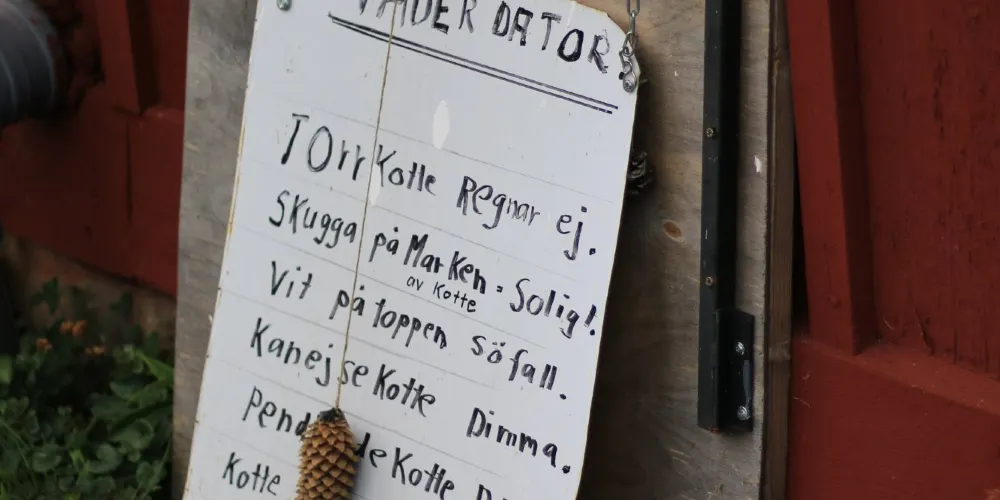 VÄDER DATOR
TOrr Kotte Regnar ej.
Skugga på Marken = Solig!
av Kotte
Vit på toppen söfall.
Kan ej se Kotte Dimma.
Pend de Kotte
Kotte